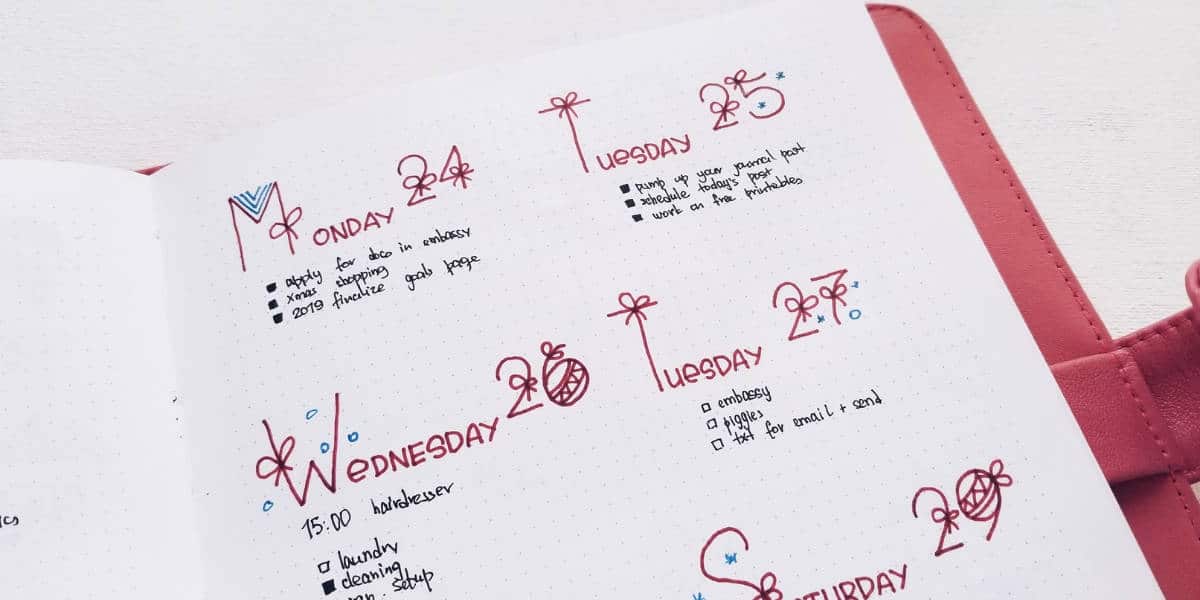 MONDAY 24
apply for docs in embassy
xmas shopping
2019 finalize goals page
TUESDAY 25
pump up your journal post
schedule today's post
work on free printables
WEDNESDAY 26
15:00 hairdresser
laundry
cleaning
setup
TUESDAY 27
embassy
piggies
txt for email + send
SATURDAY 29